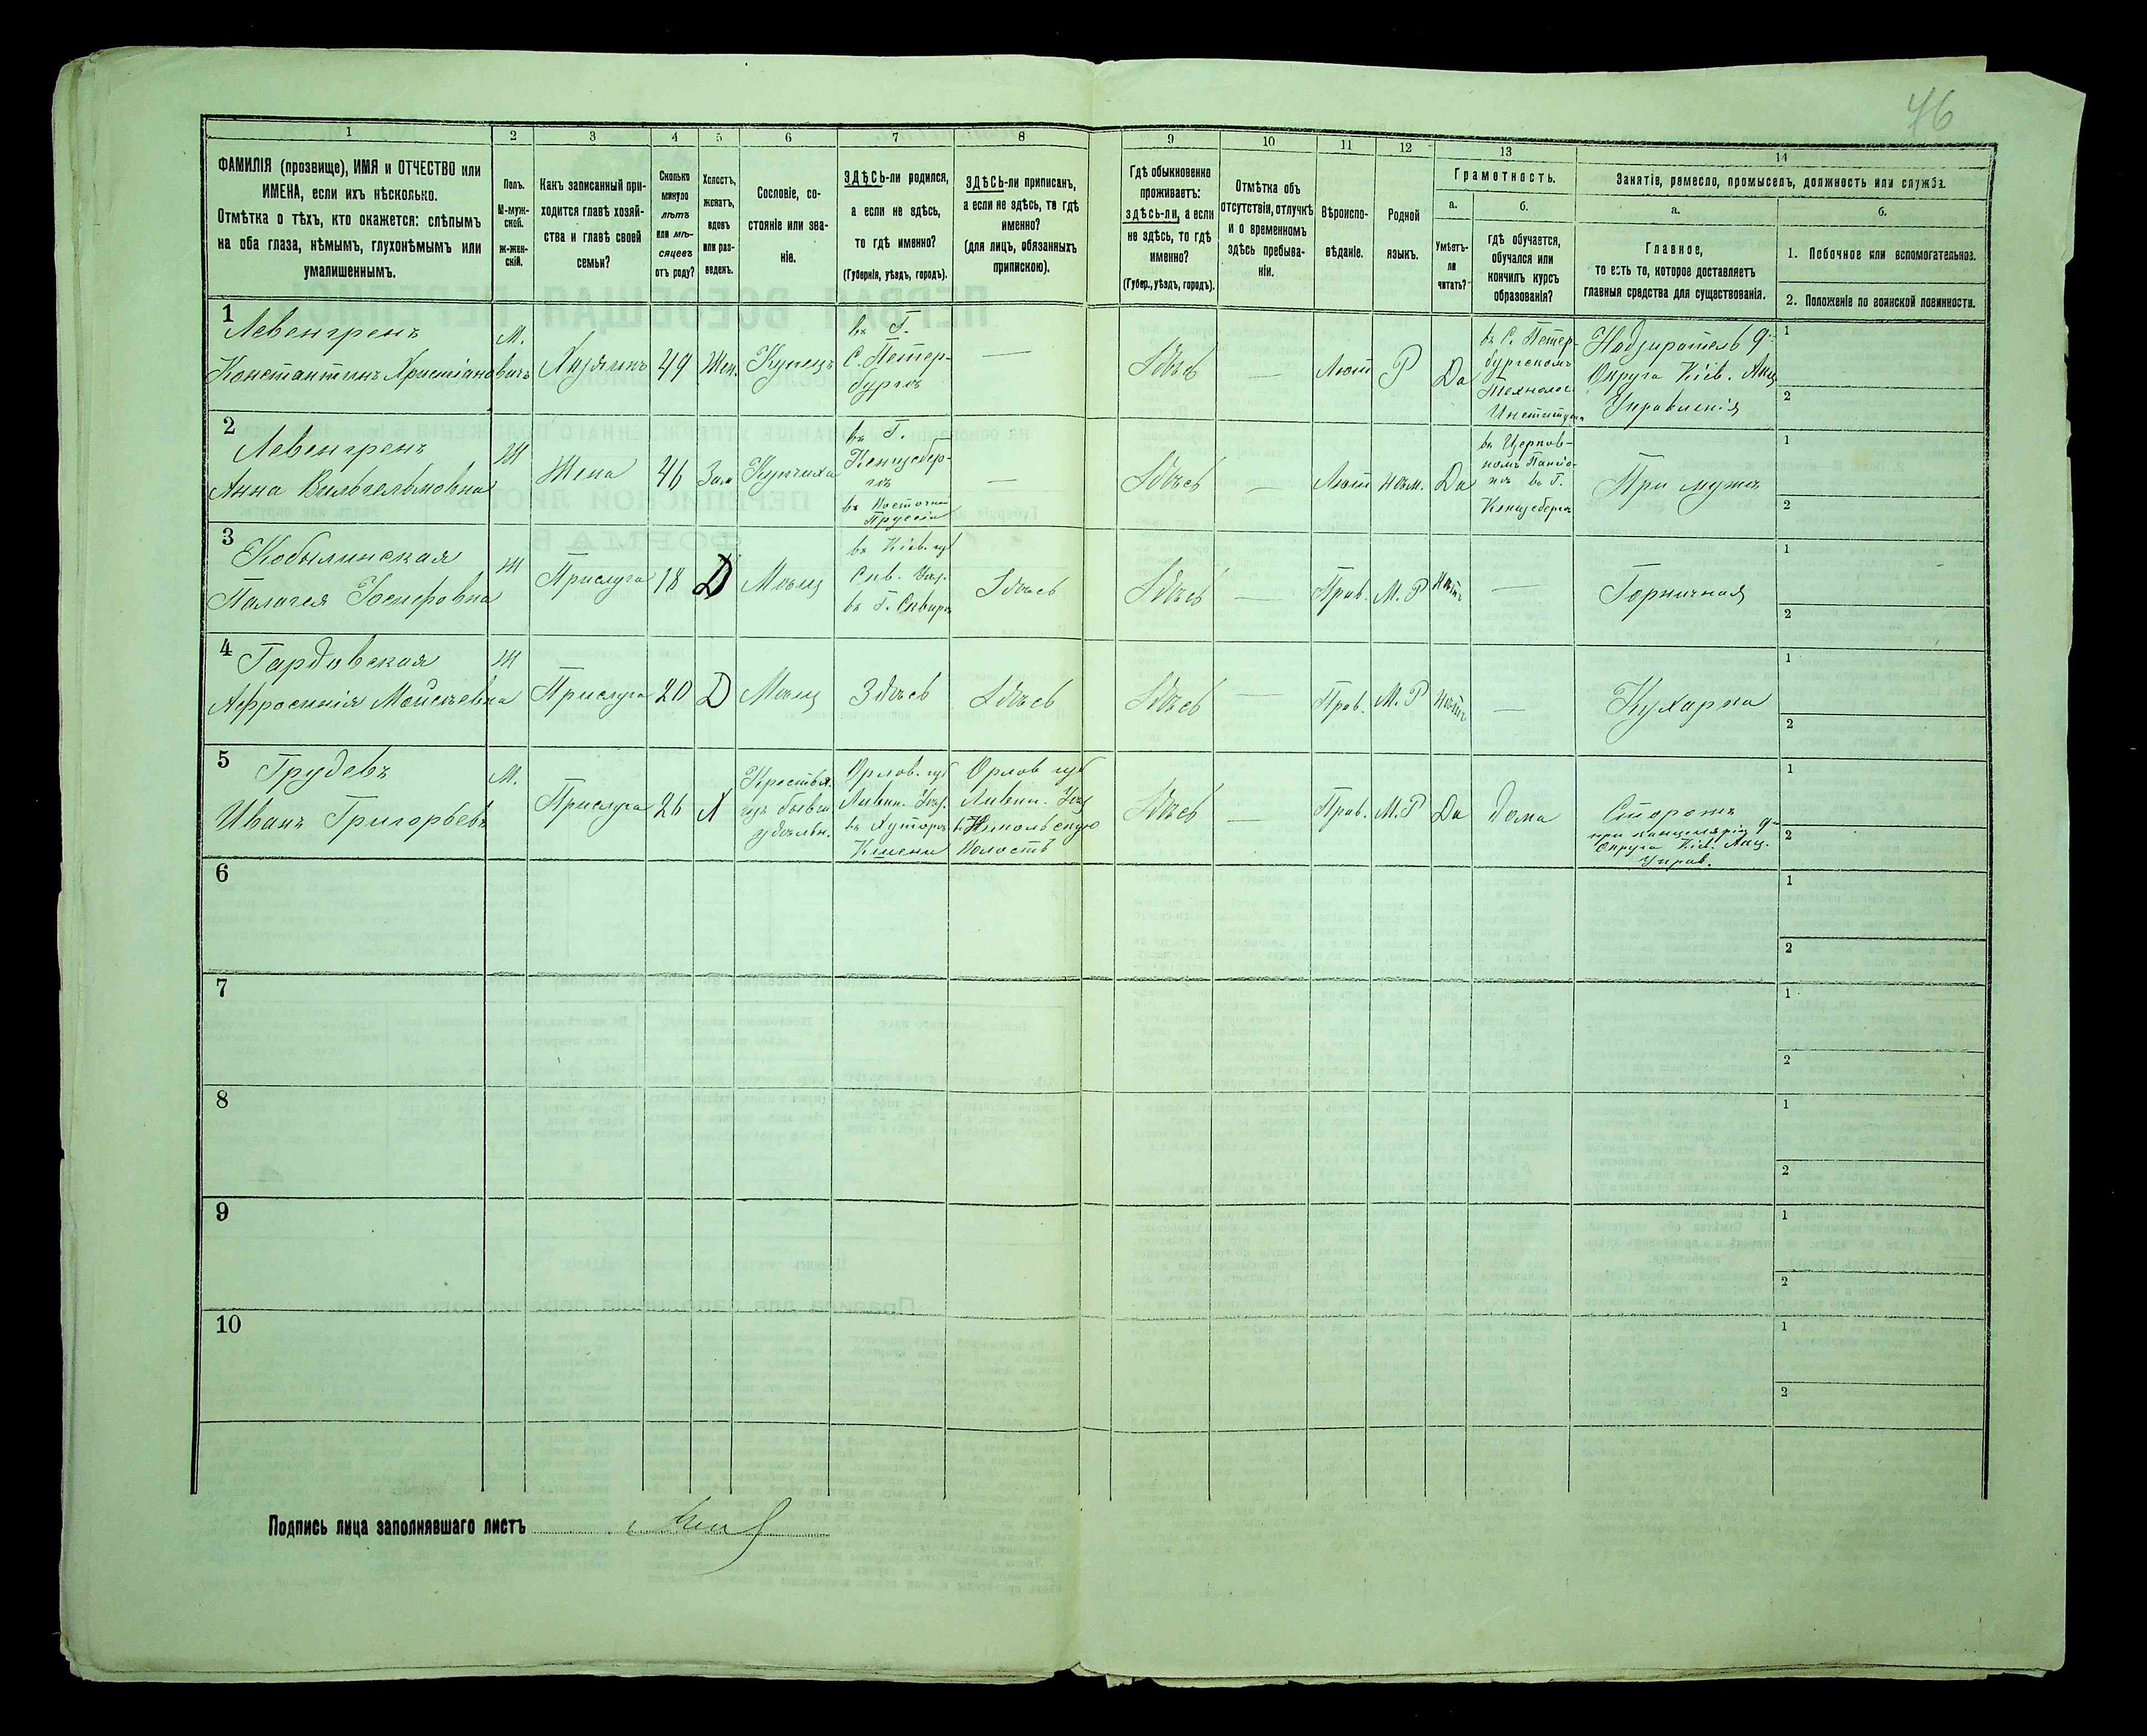 46
1
2
3
4
5
6
7
8
9
10
11
12
13
14
ФАМИЛІЯ (прозвище), ИМЯ и ОТЧЕСТВО или
ИМЕНА, если ихъ нѣсколько.
Отмѣтка о тѣхъ, кто окажется: слѣпымъ
на оба глаза, нѣмымъ, глухонѣмымъ или
умалишеннымъ.
Полъ.
М-муж-
ской.
Ж-жен-
скій.
Какъ записанный при-
ходится главѣ хозяй-
ства и главѣ своей
семьи?
Сколько
минуло
лѣтъ
или мѣ-
сяцевъ
отъ роду?
Холостъ,
женатъ,
вдовъ
или раз-
веденъ.
Сословіе, со-
стояніе или зва-
ніе.
ЗДѢСЬ-ли родился,
а если не здѣсь,
то гдѣ именно?
(Губернія, уѣздъ, городъ).
ЗДѢСЬ-ли приписанъ,
а если не здѣсь, то гдѣ
именно?
(для лицъ, обязанныхъ
припискою).
Гдѣ обыкновенно
проживаетъ:
здѣсь-ли, а если
не здѣсь, то гдѣ
именно?
(Губер., уѣздъ, городъ).
Отмѣтка объ
отсутствіи, отлучкѣ
и о временномъ
здѣсь пребыва-
ніи.
Вѣроиспо-
вѣданіе.
Родной
языкъ.
Грамотность.
а.
Умѣетъ-
ли
читать?
б.
гдѣ обучается,
обучался или
кончилъ курсъ
образованія?
Занятіе, ремесло, промыселъ, должность или служба.
а.
Главное,
то есть то, которое доставляетъ
главныя средства для существованія.
б.
1. Побочное или вспомогательное.
2. Положеніе по воинской повинности.
1
Левенгренъ
Константинъ Христіановичъ
М.
Хозяинъ
49
Жен.
Купецъ
въ Г.
С. Петер-
бургѣ
—
Здѣсь
—
Лют
Р
Да
въ С. Петер-
бургскомъ
Технолог
Институтѣ
Надзиратель 9
Округа Кіев. Акц
Управленія
1
2
2
Левенгренъ
Анна Вильгельмовна
Ж
Жена
46
Зам
Купчиха
въ Г.
Кенигсбер-
гѣ
въ Восточной
Пруссіи
—
Здѣсь
—
Лют
нѣм.
Да
въ Церков-
номъ Пансіо-
нѣ въ Г.
Кенигсбергѣ
При мужѣ
1
2
3
Кобылинская
Палагея Іосифовна
Ж
Прислуга
18
Д
Мѣщ
въ Кіев. губ
Скв. Уѣз.
въ Г. Сквирѣ
Здѣсь
Здѣсь
—
Прав.
М. Р
Нѣтъ
—
Горничная
1
2
4
Гардовская
Афросинія Мойсѣевна
Ж
Прислуга
20
Д
Мѣщ
Здѣсь
Здѣсь
Здѣсь
—
Прав.
М. Р
Нѣтъ
—
Кухарка
1
2
5
Грудевъ
Иванъ Григорьевъ
М.
Прислуга
26
Х
Крестьян.
изъ бывш
удѣльн.
Орлов. губ
Ливен. Уѣз.
въ Хуторѣ
Орлов губ
Ливен. Уѣз
въ Никольскую
Волость
Здѣсь
—
Прав.
М. Р
Да
дома
Сторожъ
при канцеляріи 9
Округа Кіев. Акц.
Управ.
1
2
6
1
2
7
1
2
8
1
2
9
1
2
10
1
2
Подпись лица заполнявшаго листъ